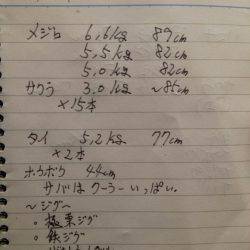 メジロ 6,6kg 89cm
5,5kg 82cm
5,0kg 82cm
サワラ 3.0kg ~85cm
×15本
タイ 5,2kg 77cm
×2本
ホウボウ 44cm
サバはクーラーいっぱい。
～ジグ～
。極栗ジグ
。鉄ジグ